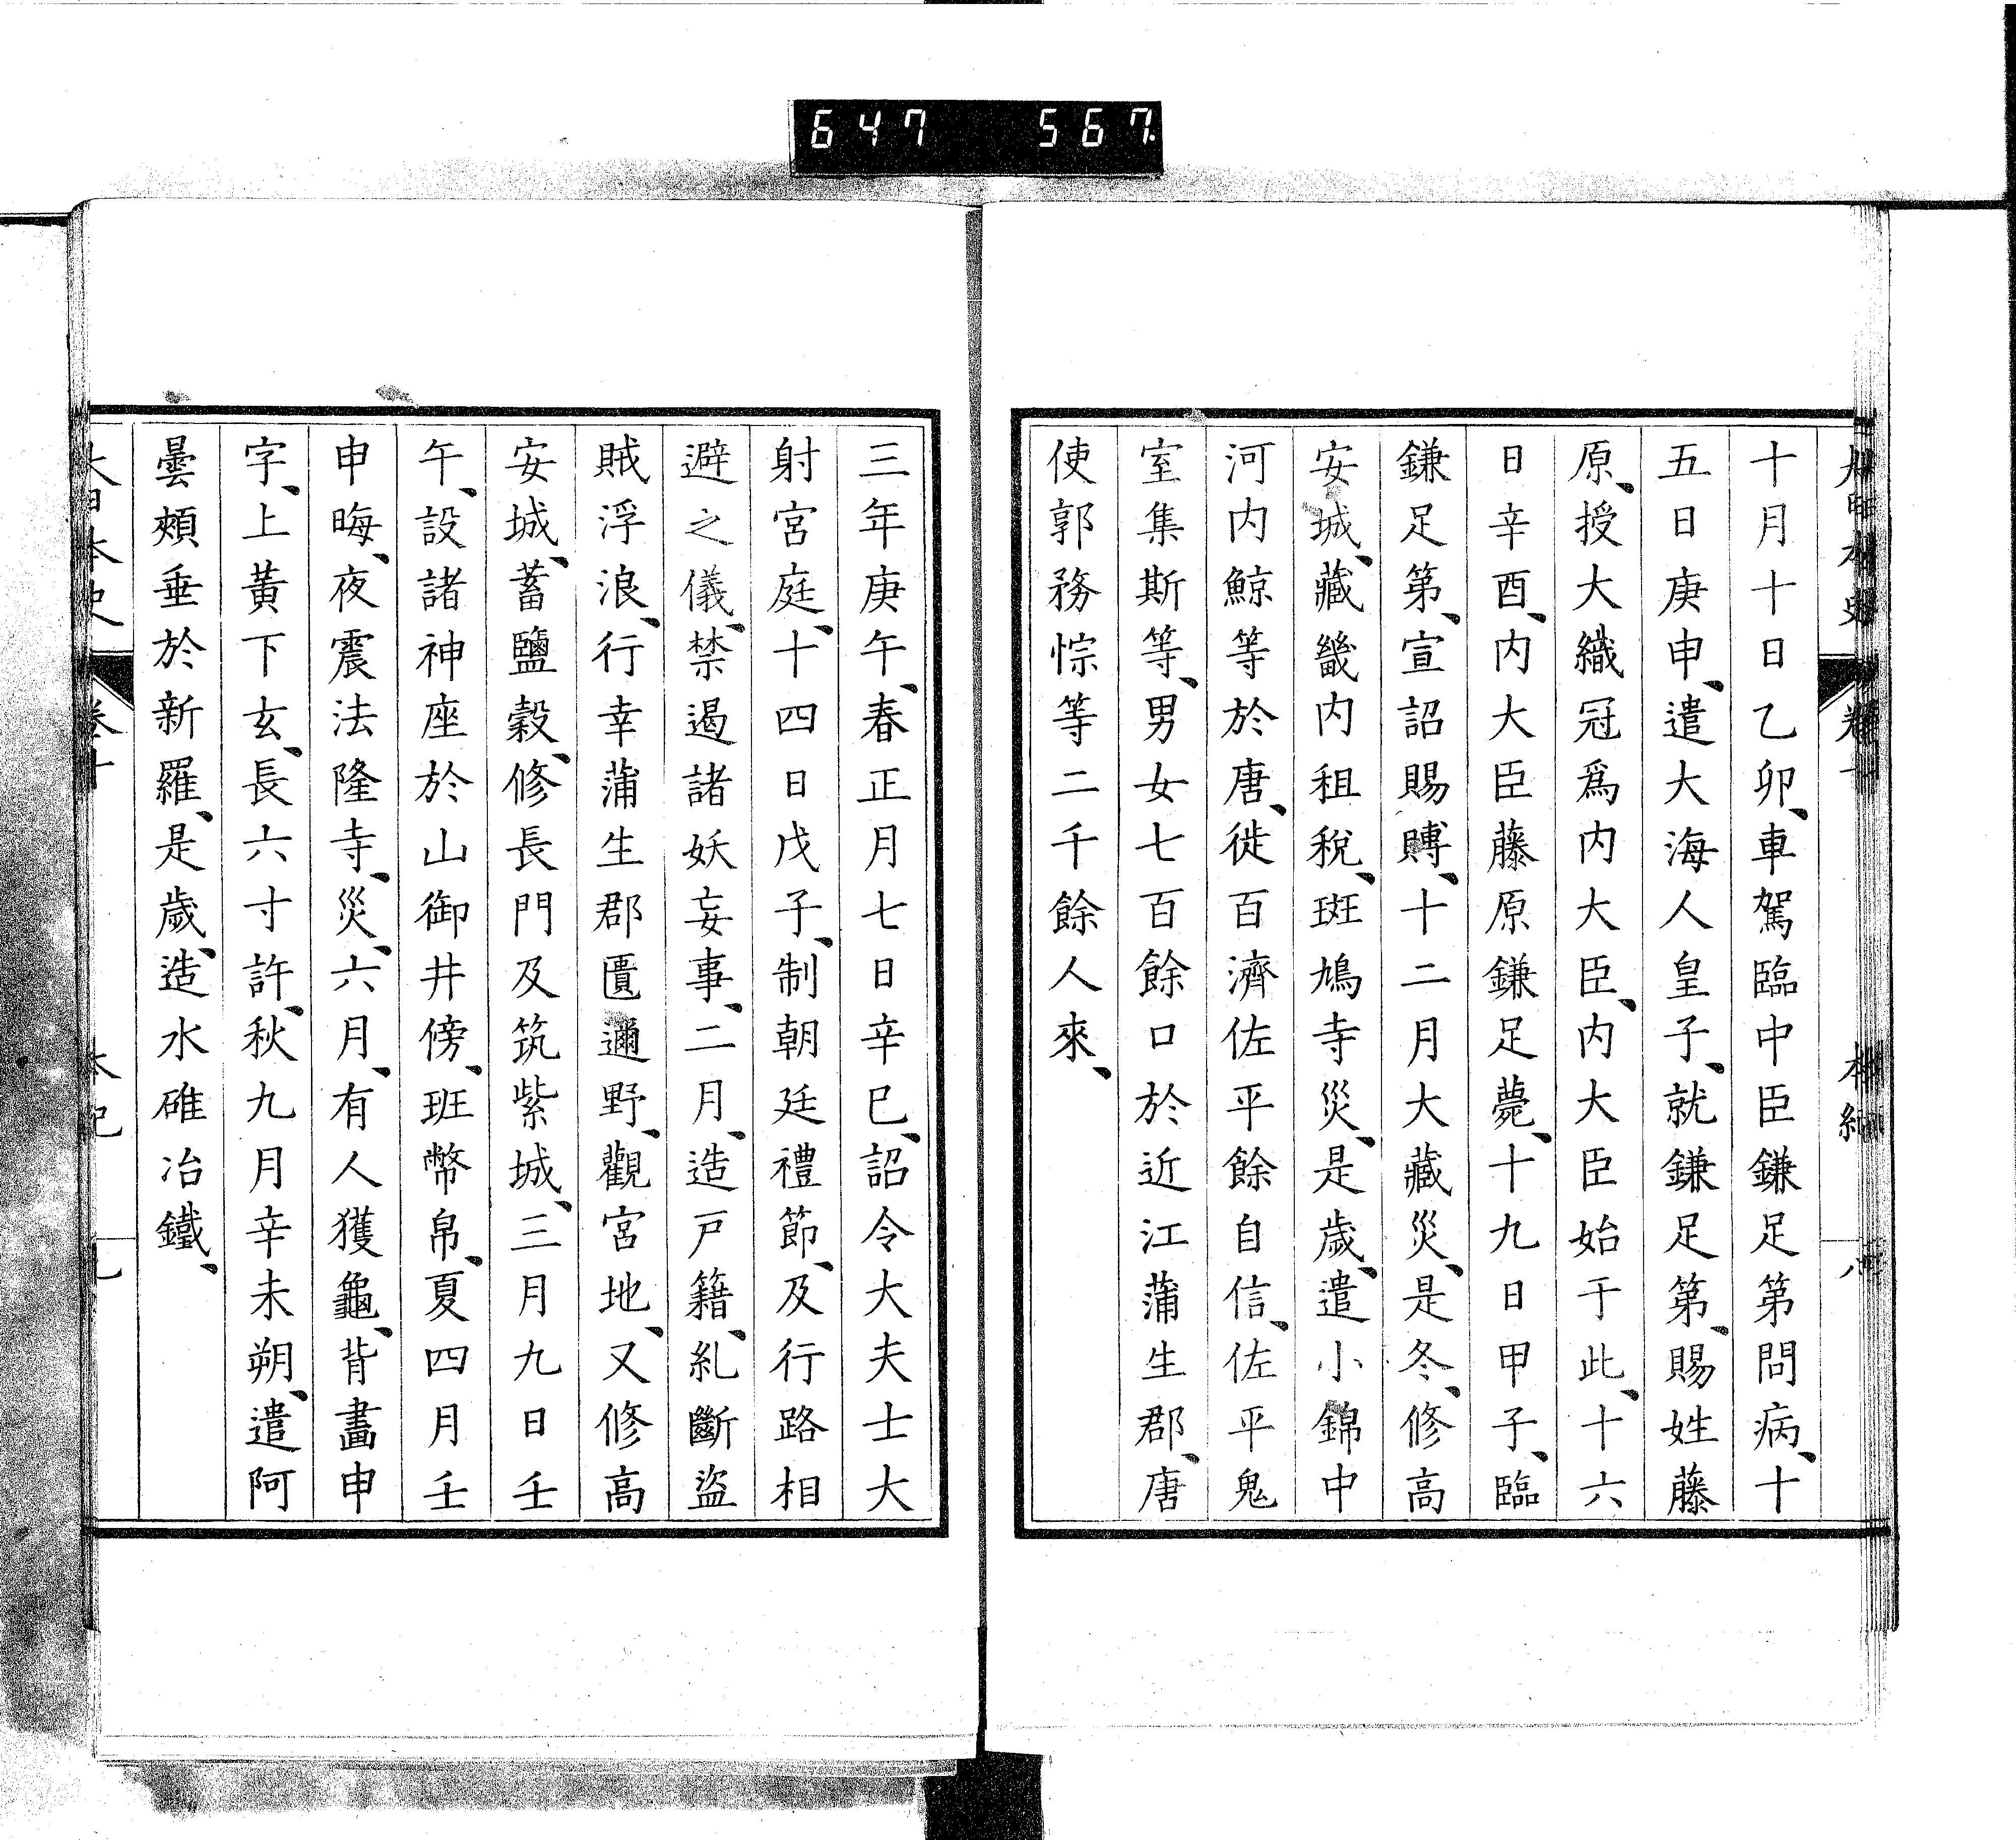 647 567.
十月十日乙卯、車駕臨中臣鎌足第問病、十
五日庚申、遣大海人皇子、就鎌足第、賜姓藤
原、授大織冠爲内大臣、内大臣始于此、十六
日辛酉、内大臣藤原鎌足薨、十九日甲子、臨
鎌足第、宣詔賜賻、十二月大藏災、是冬、修高
安城、藏畿内租税、斑鳩寺災、是歲、遣小錦中
河内鯨等於唐、徙百濟佐平餘自信、佐平鬼
室集斯等、男女七百餘口於近江蒲生郡、唐
使郭務悰等二千餘人來、
三年庚午、春正月七日辛巳、詔令大夫士大
射宮庭、十四日戊子、制朝廷禮節、及行路相
避之儀、禁遏諸妖妄事、二月、造戸籍、糺斷盜
賊浮浪、行幸蒲生郡匱邇野、觀宮地、又修高
安城、蓄鹽穀、修長門及筑紫城、三月九日壬
午、設諸神座於山御井傍、班幣帛、夏四月壬
申晦、夜震法隆寺、災、六月、有人獲龜、背畵申
字、上黃下玄、長六寸許、秋九月辛未朔、遣阿
曇頰垂於新羅、是歲、造水碓冶鐵、
大日本史 卷十 本紀